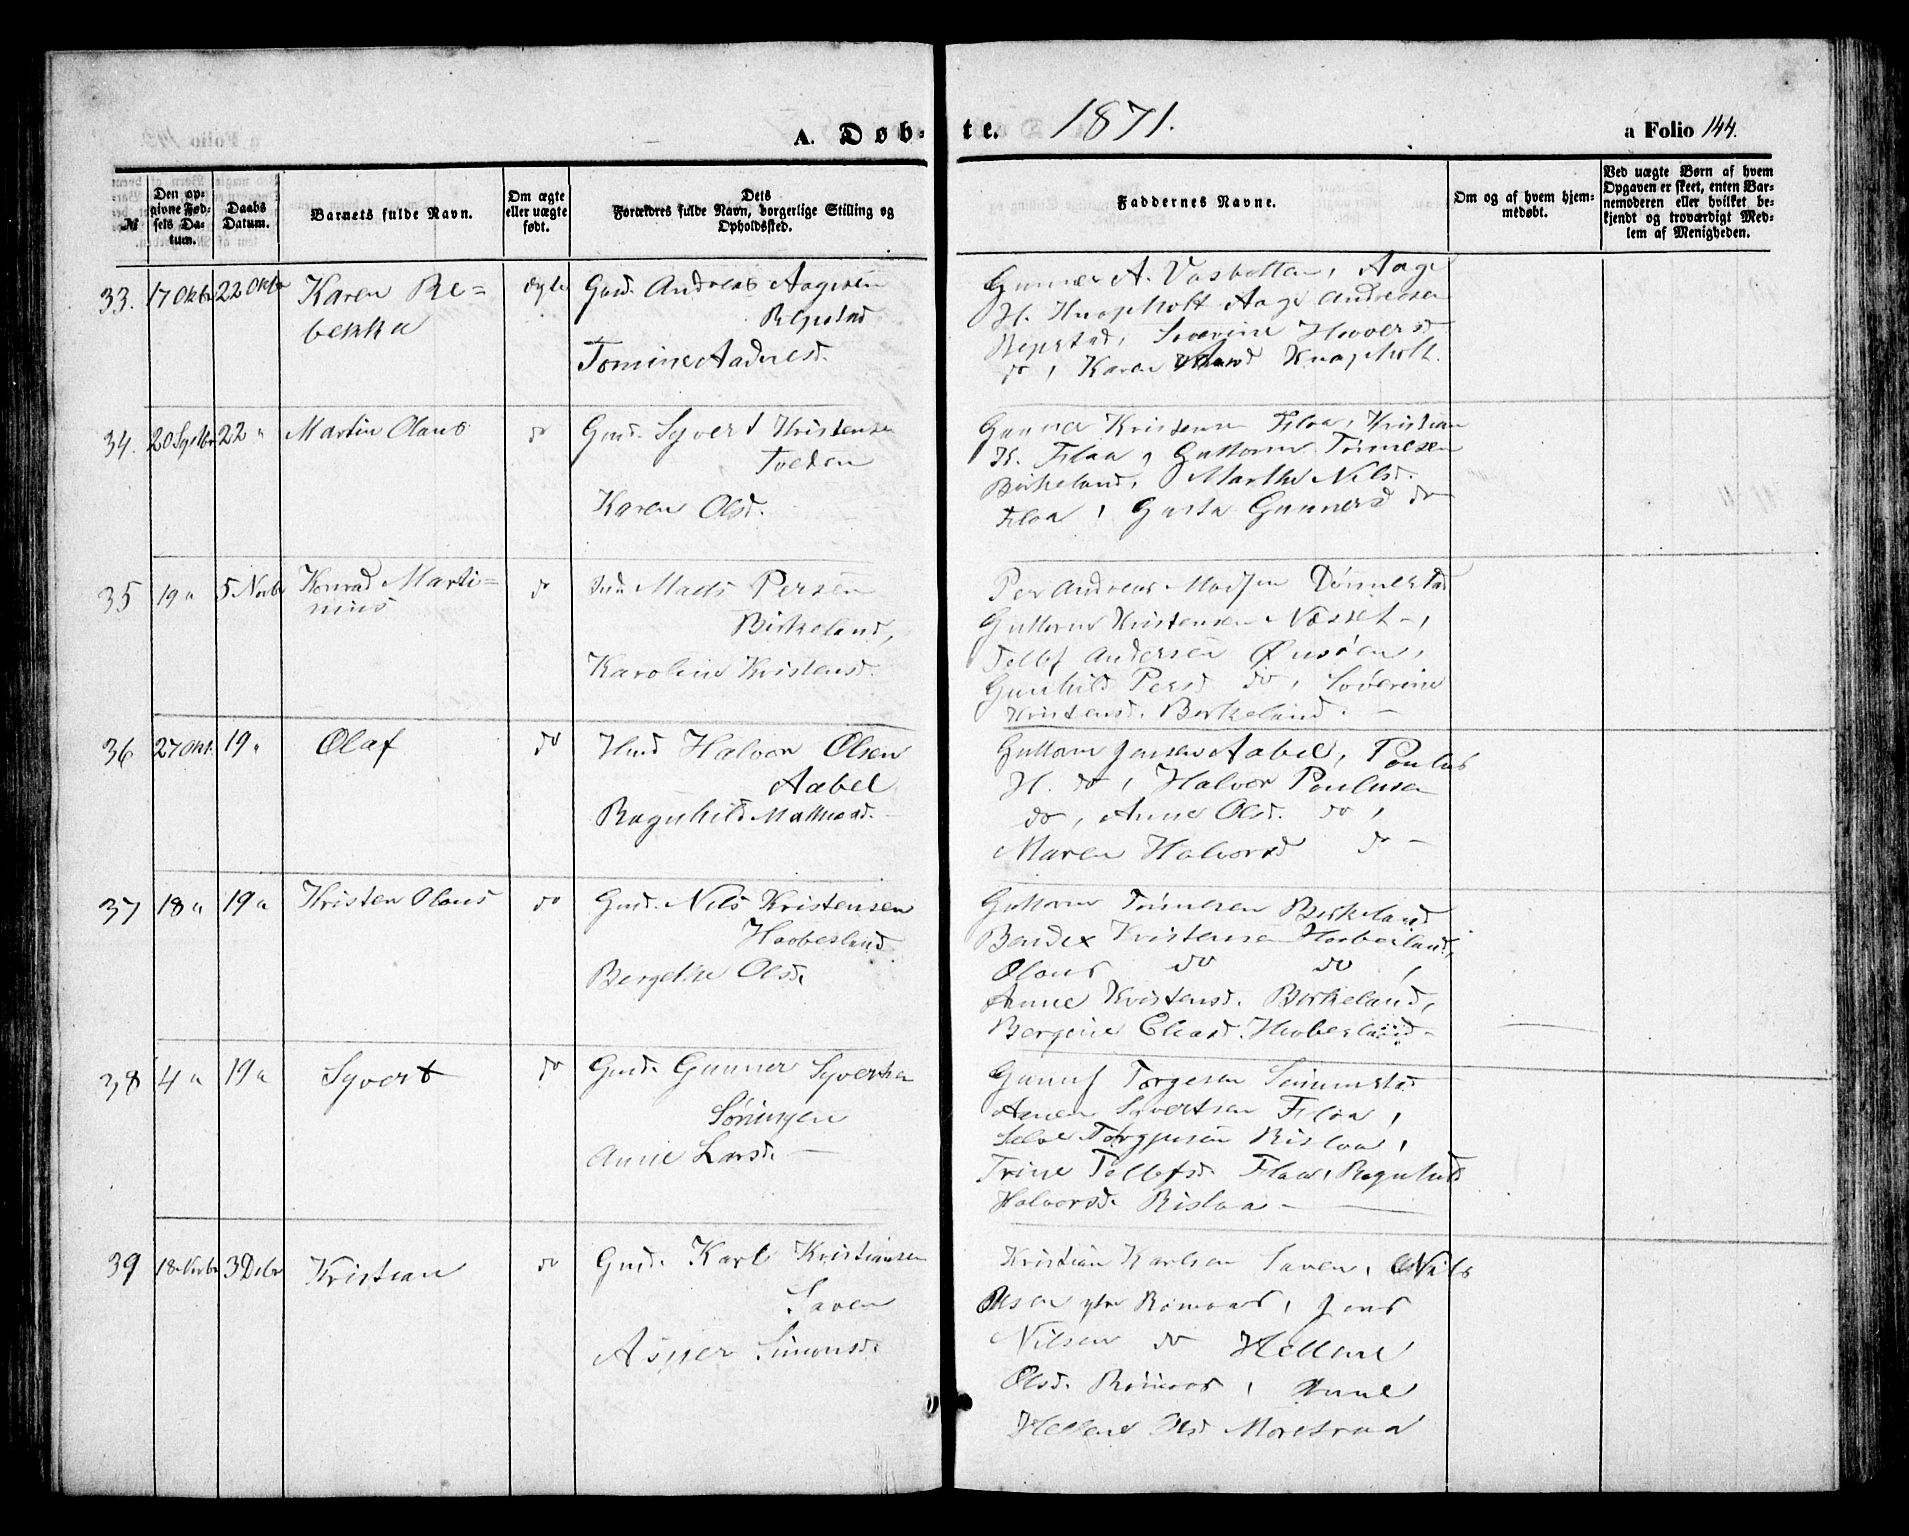 A. Døb-te. 1871.
a Folio 144.
№
Den op-
givne Fød-
sels Da-
tum.
Daabs
Datum.
Barnets fulde Navn.
Om ægte
eller uægte
født.
Dets
Forældres fulde Navn, borgerlige Stilling og
Opholdssted.
Faddernes Navne.
Om og af hvem hjem-
medøbt.
Ved uægte Børn af hvem
Opgaven er skeet, enten Bar-
nemoderen eller hvilket be-
kjendt og troværdigt Med-
lem af Menigheden.
33. 17 Oktbr 22 Oktbr Karen Re-
bekka
ægte
Gmd. Andreas Aagesen
Repstad
Tomine Aadnesd.
Gunner A. Vasbotten, Aage
H. Knapholt Aage Andreasen
Repstad, Severine Hovers
do, Karen Knapholt.
34. 20 Septbr 22 " Martin Olaus do
Gmd. Syvert Kristensen
Tveden
Karen Olsd.
Gunner Kristensen Flaa, Kristian
K. Flaa, Guttorm Tønnesen
Birkeland, Marthe Nilsd.
Flaa, Gusta Gunnersd do
35 19 " 5 Novbr Konrad Marti-
nius
do
Mads Persen
Birkeland,
Karoline Kristensd.
Per Andreas Madsen Dønnestad
Guttorm Kristensen Næsset,
Tellef Andersen
Gunhild Persd do, Severine
Kristensd. Birkeland.
36 27 Okt. 19 " Olaf do
Hmd Halvor Olsen
Aabel
Ragnhild
Guttorm Jensen Aabel, Poulus
H. do, Halvor Poulusen
do, Anne Olsd. do,
Maren Halvorsd do
37 18 " 19 " Kristen Olaus do
Gmd. Nils Kristensen
Haaberland
Bergethe Olsd.
Guttorm Tønnesen Birkeland
Bendex Kristensen Haaberland,
Olaus do do,
Anne Kristensd. Birkeland,
Bergine Eliasd. Haaberland
38 4 " 19 " Syvert do
Gmd. Gunner Syvertsen
Anne Larsd.
Gunuf Torgesen
Syvertsen Flaa,
Rislaa,
Trine Tellefsd. Flaa, Ragnhild
Halvorsd. Rislaa
39 18 Novbr 3 Debr Kristian do
Gmd. Karl Kristiansen
Saven
Asper Simonsd.
Kristian Karlsen Saven, Nils
Olsen ytre Røinaas, Jens
Nilsen do Hellene
Olsd. Røinaas, Anne
Hellene Olsd